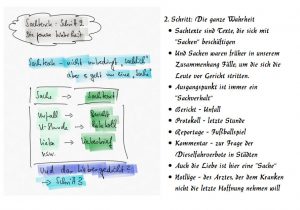 Sachtexte: Schritt 2
Die ganze Wahrheit
Sachtexte - nicht unbedingt "sachlich"
aber es geht um eine "Sache"
Sache → Sachtext
Unfall → Bericht
U-Stunde → Protokoll
Liebe → Liebesbrief
usw.
Und das Liebesgedicht?
→ Schritt 3
2. Schritt: Die ganze Wahrheit
• Sachtexte sind Texte, die sich mit
"Sachen" beschäftigen
• Und Sachen waren früher in unserem
Zusammenhang Fälle, um die sich die
Leute vor Gericht stritten.
• Ausgangspunkt ist immer ein
"Sachverhalt"
• Bericht - Unfall
• Protokoll - letzte Stunde
• Reportage - Fußballspiel
• Kommentar - zur Frage der
Dieselfahrverbote in Städten
• Auch die Liebe ist hier eine "Sache"
• Notlüge - des Arztes, der dem Kranken
nicht die letzte Hoffnung nehmen will